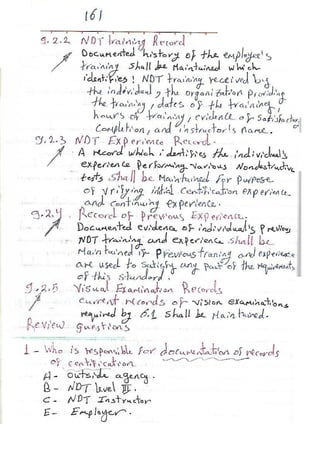 161
9.2.2 NDT training Record
Documented history of the employee's
training shall be Maintained which
identifies! NDT training received by
the individual, the organization providing
the training, dates of the training,
hours of training, evidence of satisfactory
Completion, and instructor's name.
9.2.3 NDT Experience Record.
A record which identifies the individual's
experience performing various Nondestructive
tests shall be Maintained for purpose
of vrifying initial Certification experience
and continuing experience.
9.2.4 Record of Previous Experience.
Documented evidence of individual's previous
NDT training and experience shall be
Maintained if previous traning and experience
are used to satisfy any part of the requirements
of this standard.
9.2.5 Visual Examination Records
current records of vision examinations
required by 6.1 shall be Maintained.
Review questions
1- Who is responsible for documentation of records
of certification
A- outside agency.
B- NDT level III.
C- NDT Instructor
E- Employer.